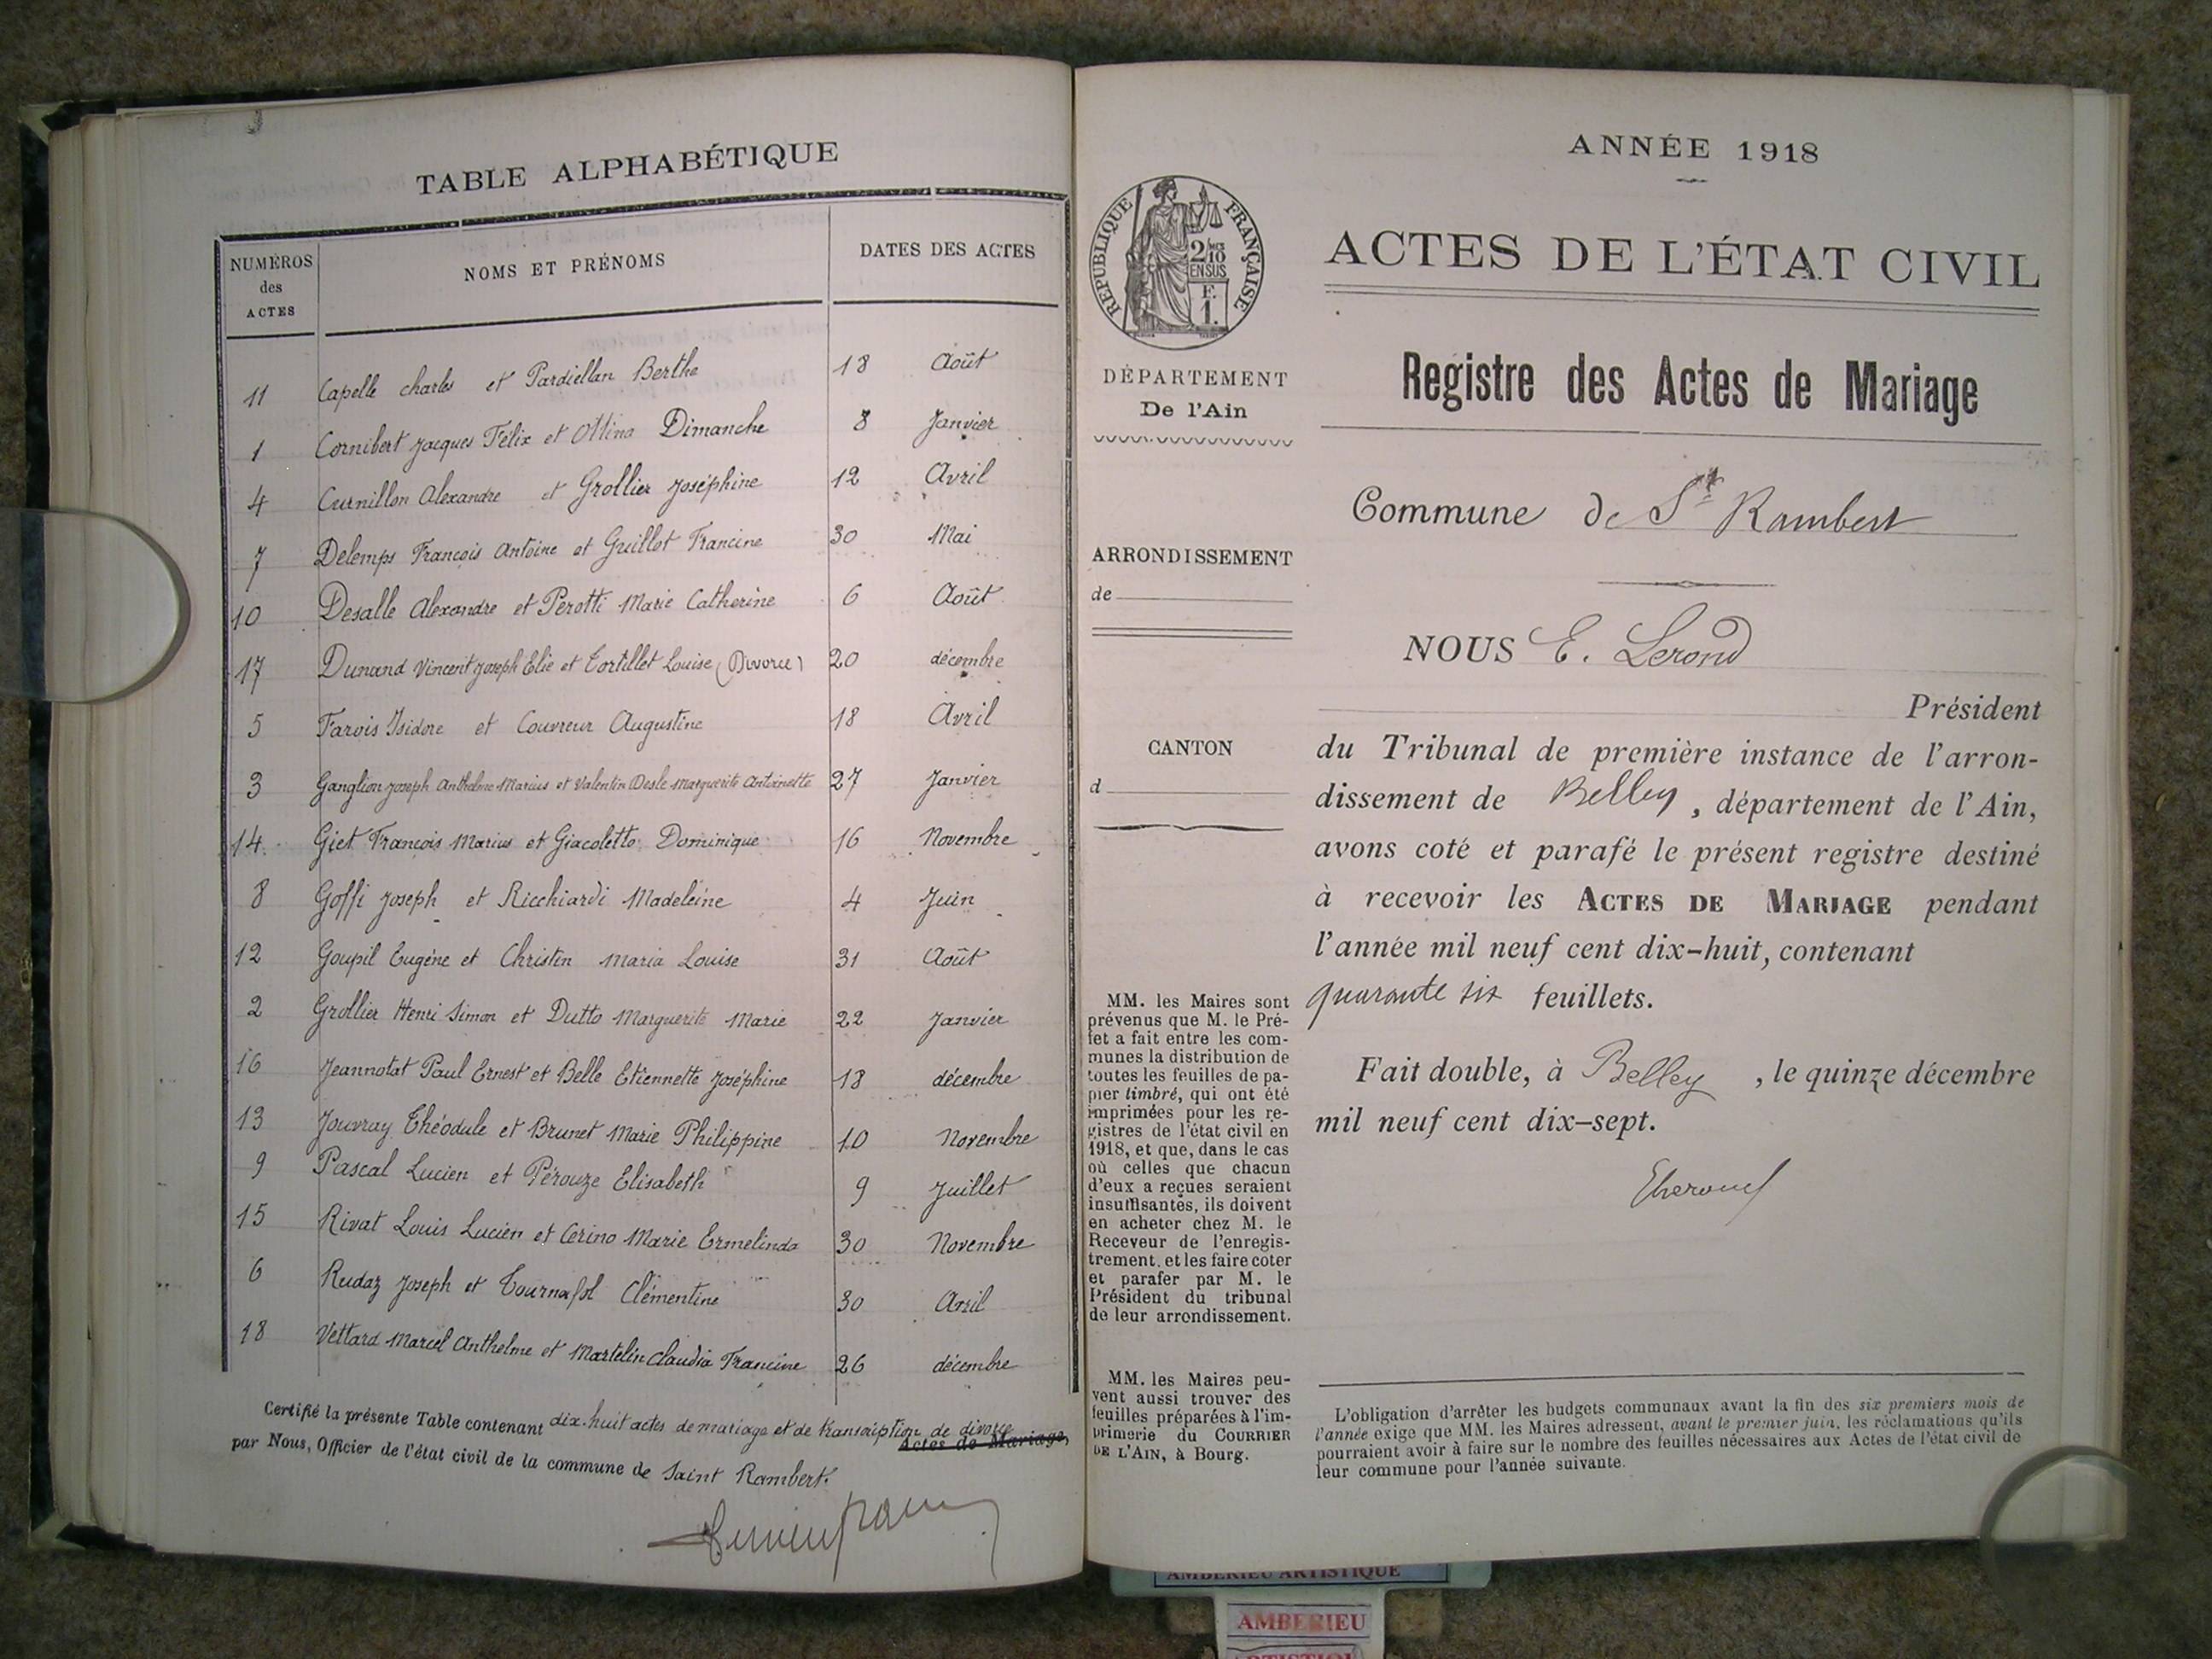 TABLE ALPHABÉTIQUE
NUMÉROS des ACTES NOMS ET PRÉNOMS DATES DES ACTES
11 Capelle charles et Pardiellan Berthe 18 Août
1 Cornibert Jacques Félix et Ottina Dimanche 8 Janvier
4 Curnillon Alexandre et Grollier Joséphine 12 Avril
7 Delemps François Antoine et Guillot Francine 30 Mai
10 Desalle Alexandre et Perotti Marie Catherine 6 Août
17 Dunand Vincent Joseph Elie et Tortillet Louise (Divorce) 20 décembre
5 Farois Isidore et Couvreur Augustine 18 Avril
3 Ganglion Joseph Anthelme Marius et Valentin Desle Marguerite Antoinette 27 Janvier
14 Giet François Marius et Giacoletto Dominique 16 Novembre
8 Goffi Joseph et Ricchiardi Madeleine 4 Juin
12 Goupil Eugène et Christin Maria Louise 31 Août
2 Grollier Henri Simon et Dutto Marguerite Marie 22 Janvier
16 Jeannotat Paul Ernest et Belle Etiennette Joséphine 18 décembre
13 Jouvray Théodule et Brunet Marie Philippine 10 Novembre
9 Pascal Lucien et Pérouze Elisabeth 9 Juillet
15 Rivat Louis Lucien et Cerino Marie Ermelinda 30 Novembre
6 Rudaz Joseph et Tournafol Clémentine 30 Avril
18 Vettard Marcel Anthelme et Martelin Claudia Francine 26 décembre
Certifié la présente Table contenant dix-huit actes de mariage et de transcription de divorce
Actes de Mariage,
par Nous, Officier de l'état civil de la commune de Saint Rambert.
ANNÉE 1918
RÉPUBLIQUE FRANÇAISE
2/10 EN SUS
F. 1.
ACTES DE L'ÉTAT CIVIL
DÉPARTEMENT
De l'Ain
Registre des Actes de Mariage
Commune de St Rambert
ARRONDISSEMENT
de
NOUS E. Lerond
Président
CANTON
d
du Tribunal de première instance de l'arron-
dissement de Belley, département de l'Ain,
avons coté et parafé le présent registre destiné
à recevoir les ACTES DE MARIAGE pendant
l'année mil neuf cent dix-huit, contenant
quarante six feuillets.
Fait double, à Belley, le quinze décembre
mil neuf cent dix-sept.
MM. les Maires sont
prévenus que M. le Pré-
fet a fait entre les com-
munes la distribution de
toutes les feuilles de pa-
pier timbré, qui ont été
imprimées pour les re-
gistres de l'état civil en
1918, et que, dans le cas
où celles que chacun
d'eux a reçues seraient
insuffisantes, ils doivent
en acheter chez M. le
Receveur de l'enregis-
trement, et les faire coter
et parafer par M. le
Président du tribunal
de leur arrondissement.
MM. les Maires peu-
vent aussi trouver des
feuilles préparées à l'im-
primerie du COURRIER
DE L'AIN, à Bourg.
L'obligation d'arrêter les budgets communaux avant la fin des six premiers mois de
l'année exige que MM. les Maires adressent, avant le premier juin, les réclamations qu'ils
pourraient avoir à faire sur le nombre des feuilles nécessaires aux Actes de l'état civil de
leur commune pour l'année suivante.
AMBERIEU ARTISTIQUE
AMBERIEU